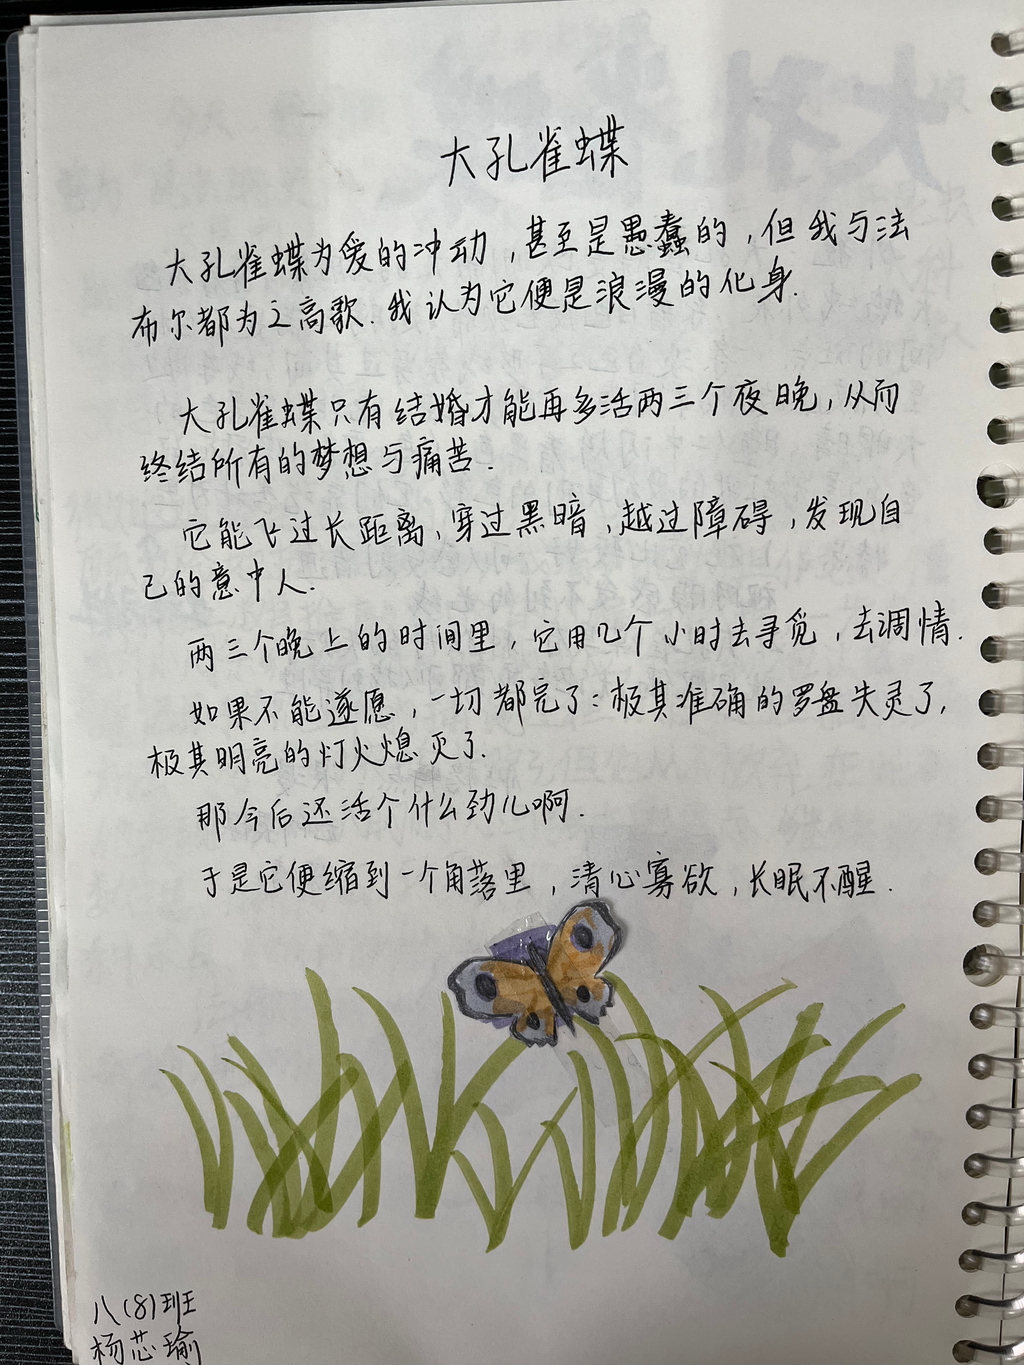 大孔雀蝶
大孔雀蝶为爱的冲动，甚至是愚蠢的，但我与法
布尔都为之高歌.我认为它便是浪漫的化身.
大孔雀蝶只有结婚才能再多活两三个夜晚，从而
终结所有的梦想与痛苦.
它能飞过长距离，穿过黑暗，越过障碍，发现自
己的意中人.
两三个晚上的时间里，它用几个小时去寻觅，去调情.
如果不能遂愿，一切都完了：极其准确的罗盘失灵了，
极其明亮的灯火熄灭了.
那今后还活个什么劲儿啊.
于是它便缩到一个角落里，清心寡欲，长眠不醒.
八(8)班
杨芯瑜